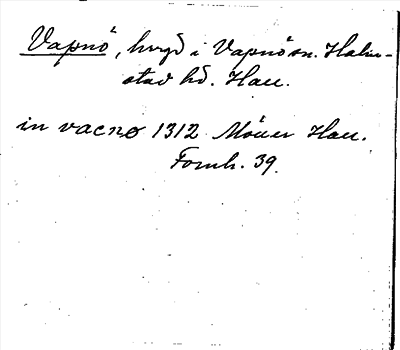 Vapnö, hvgd i Vapnö sn. Halm-
stad hd. Hall.
in vacno 1312 Möller Hall.
Fornh. 39.